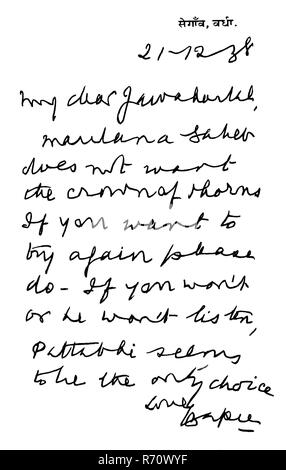 सेगाँव, वर्धा.
21-12-38
My dear Jawaharlal,
Maulana Saheb
does not want
the crown of thorns
If you want to
try again please
do - If you won't
or he won't listen,
Pattabhi seems
to be the only choice
Love
Bapu
alamy stock photo
R70WYF
www.alamy.com